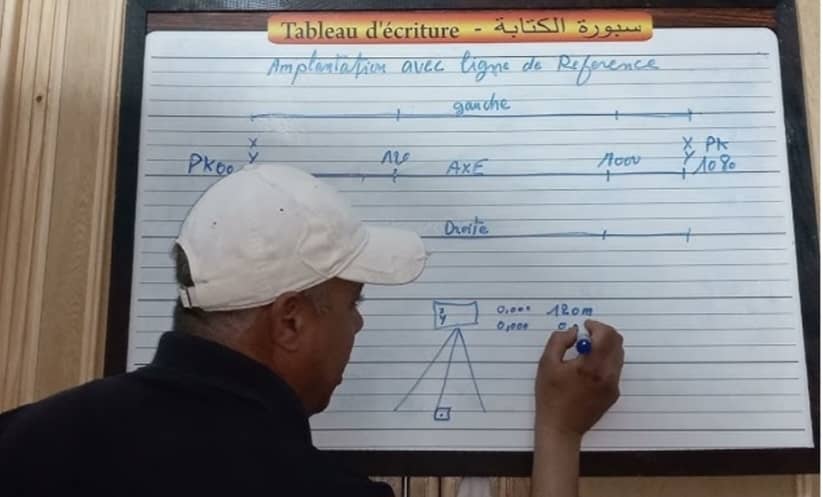 Tableau d'écriture - سبورة الكتابة
Amplantation avec ligne de Reference
gauche
X X PK
PK00 Y 120 AXE 1000 Y 1080
Droite
x 0,000 120m
y 0,000 0,